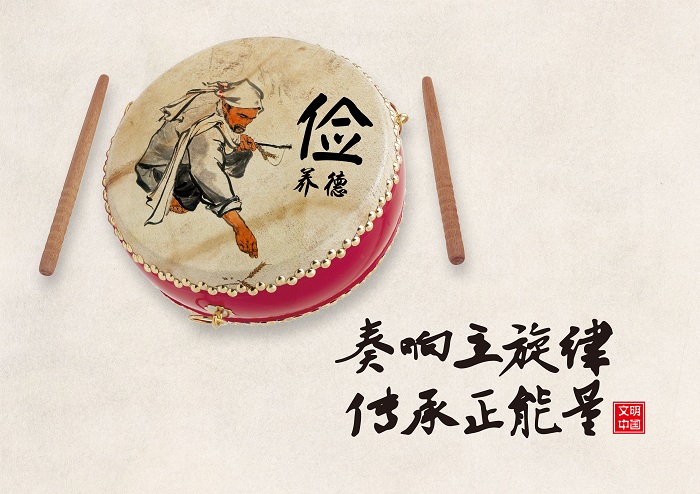 俭
养德
奏响主旋律
传承正能量
文明
中国